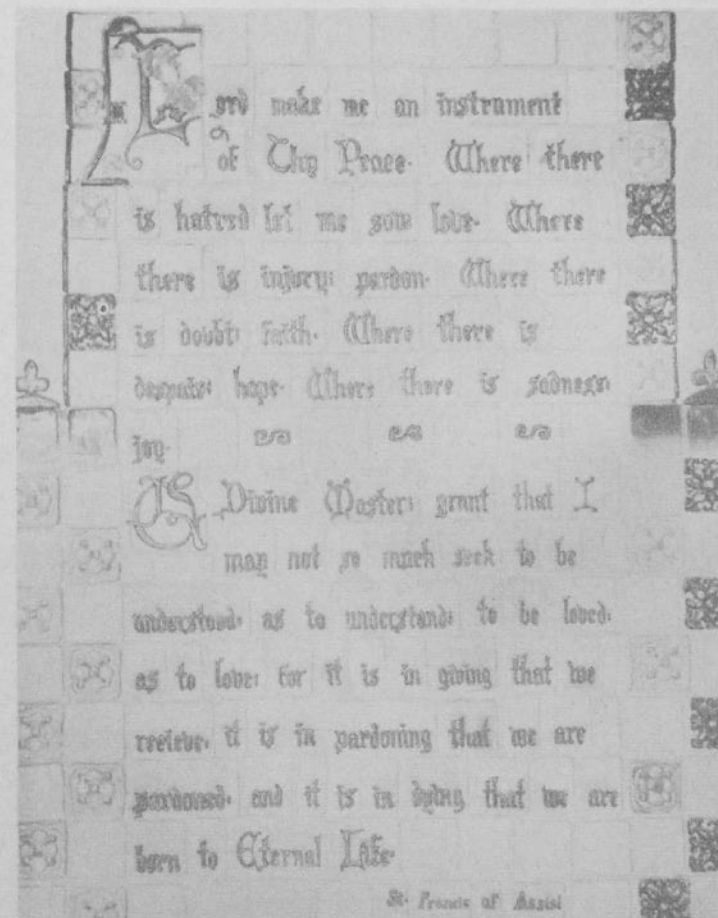 Lord make me an instrument
of Thy Peace. Where there
is hatred let me sow love. Where
there is injury: pardon. Where there
is doubt: faith. Where there is
despair: hope. Where there is sadness:
joy.
O Divine Master: grant that I
may not so much seek to be
understood: as to understand: to be loved:
as to love: for it is in giving that we
recieve: it is in pardoning that we are
pardoned: and it is in dying that we are
born to Eternal Life.
St. Francis of Assisi